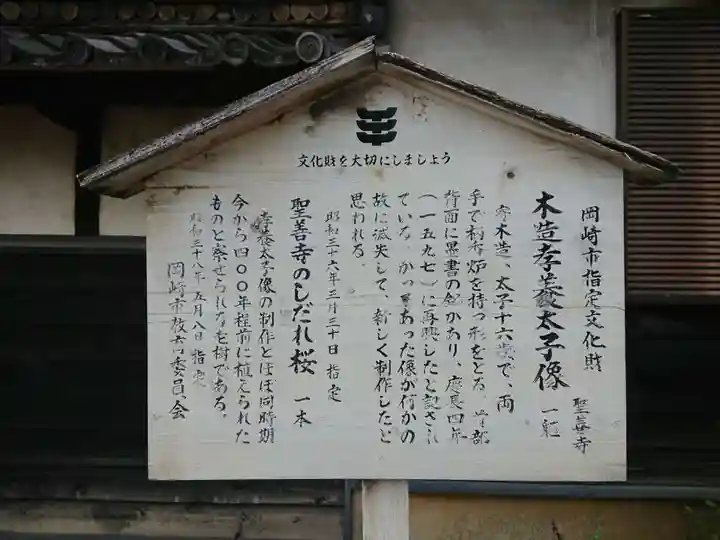 文化財を大切にしましょう
岡崎市指定文化財
聖善寺
木造孝養太子像 一躯
寄木造、太子十六歳で、両
手で柄香炉を持つ形をとる。
背面に墨書の銘があり、慶長四年
(一五九七)に再興したと記され
ている。かつてあった像が何かの
故に滅失して、新しく制作したと
思われる。
昭和三十六年三月三十日 指定
聖善寺のしだれ桜 一本
孝養太子像の制作とほぼ同時期
今から四〇〇年程前に植えられた
ものと察せられる老樹である。
昭和三十八年五月八日 指定
岡崎市教育委員会